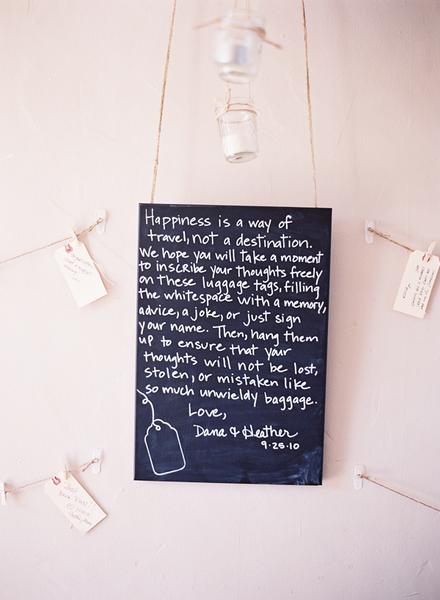 Happiness is a way of
travel, not a destination.
We hope you will take a moment
to inscribe your thoughts freely
on these luggage tags, filling
the whitespace with a memory,
advice, a joke, or just sign
your name. Then, hang them
up to ensure that your
thoughts will not be lost,
stolen, or mistaken like
so much unwieldy baggage.
Love,
Dana & Heather
9.25.10